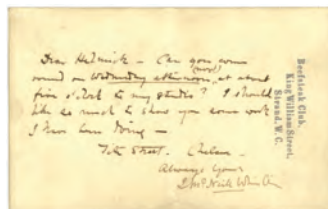 Beefsteak Club,
King William Street,
Strand, W.C.
Dear Helmick – Can you come
(next)
round on Wednesday afternoon, at about
five o'clock to my studio? I should
like so much to show you some work
I have been doing –
Tite Street. Chelsea –
Always yours
J. McNeill Whistler